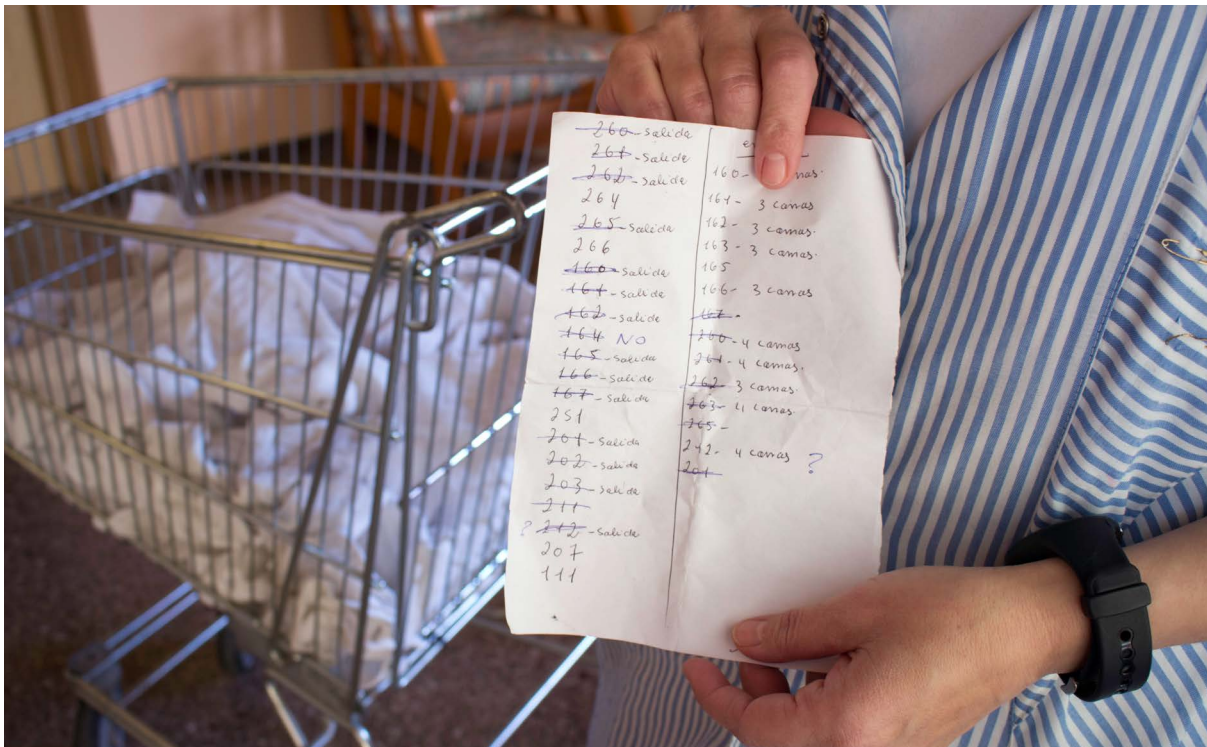 260 - salida
261 - salida
262 - salida
264
265 - salida
266
160 - salida
161 - salida
162 - salida
164 NO
165 - salida
166 - salida
167 - salida
251
201 - salida
202 - salida
203 - salida
211
? 212 - salida
207
111
160 -
161 - 3 camas
162 - 3 camas.
163 - 3 camas.
165
166 - 3 camas
167 -
260 - 4 camas
261 - 4 camas.
262 - 3 camas.
263 - 4 camas.
265 -
212 - 4 camas ?
201